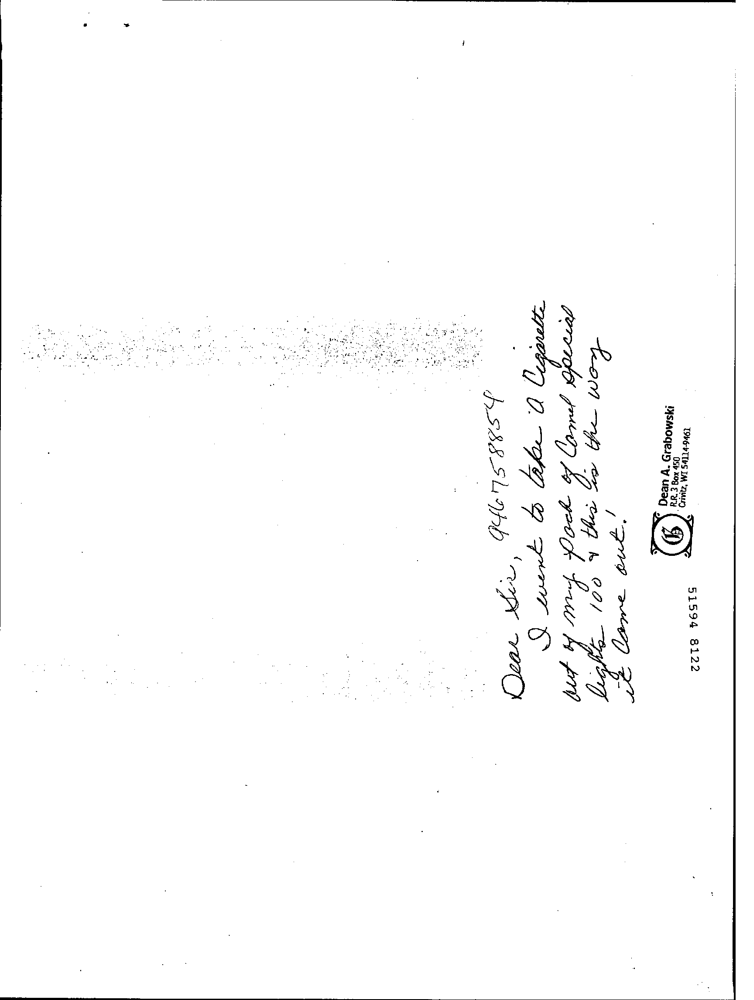 Dear Sir, 946758854
I went to take a Cigarette
out of my Pack of Camel Special
lights 100 & this is the way
it Came out!
G
Dean A. Grabowski
R.R. 3 Box 450
Crivitz, WI 54114-9461
51594 8122